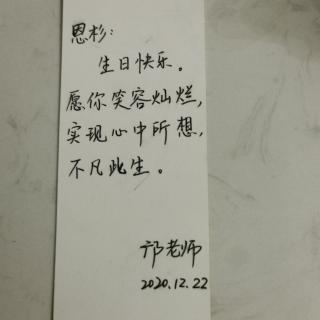 恩杉:
生日快乐。
愿你笑容灿烂,
实现心中所想,
不凡此生。
邝老师
2020.12.22